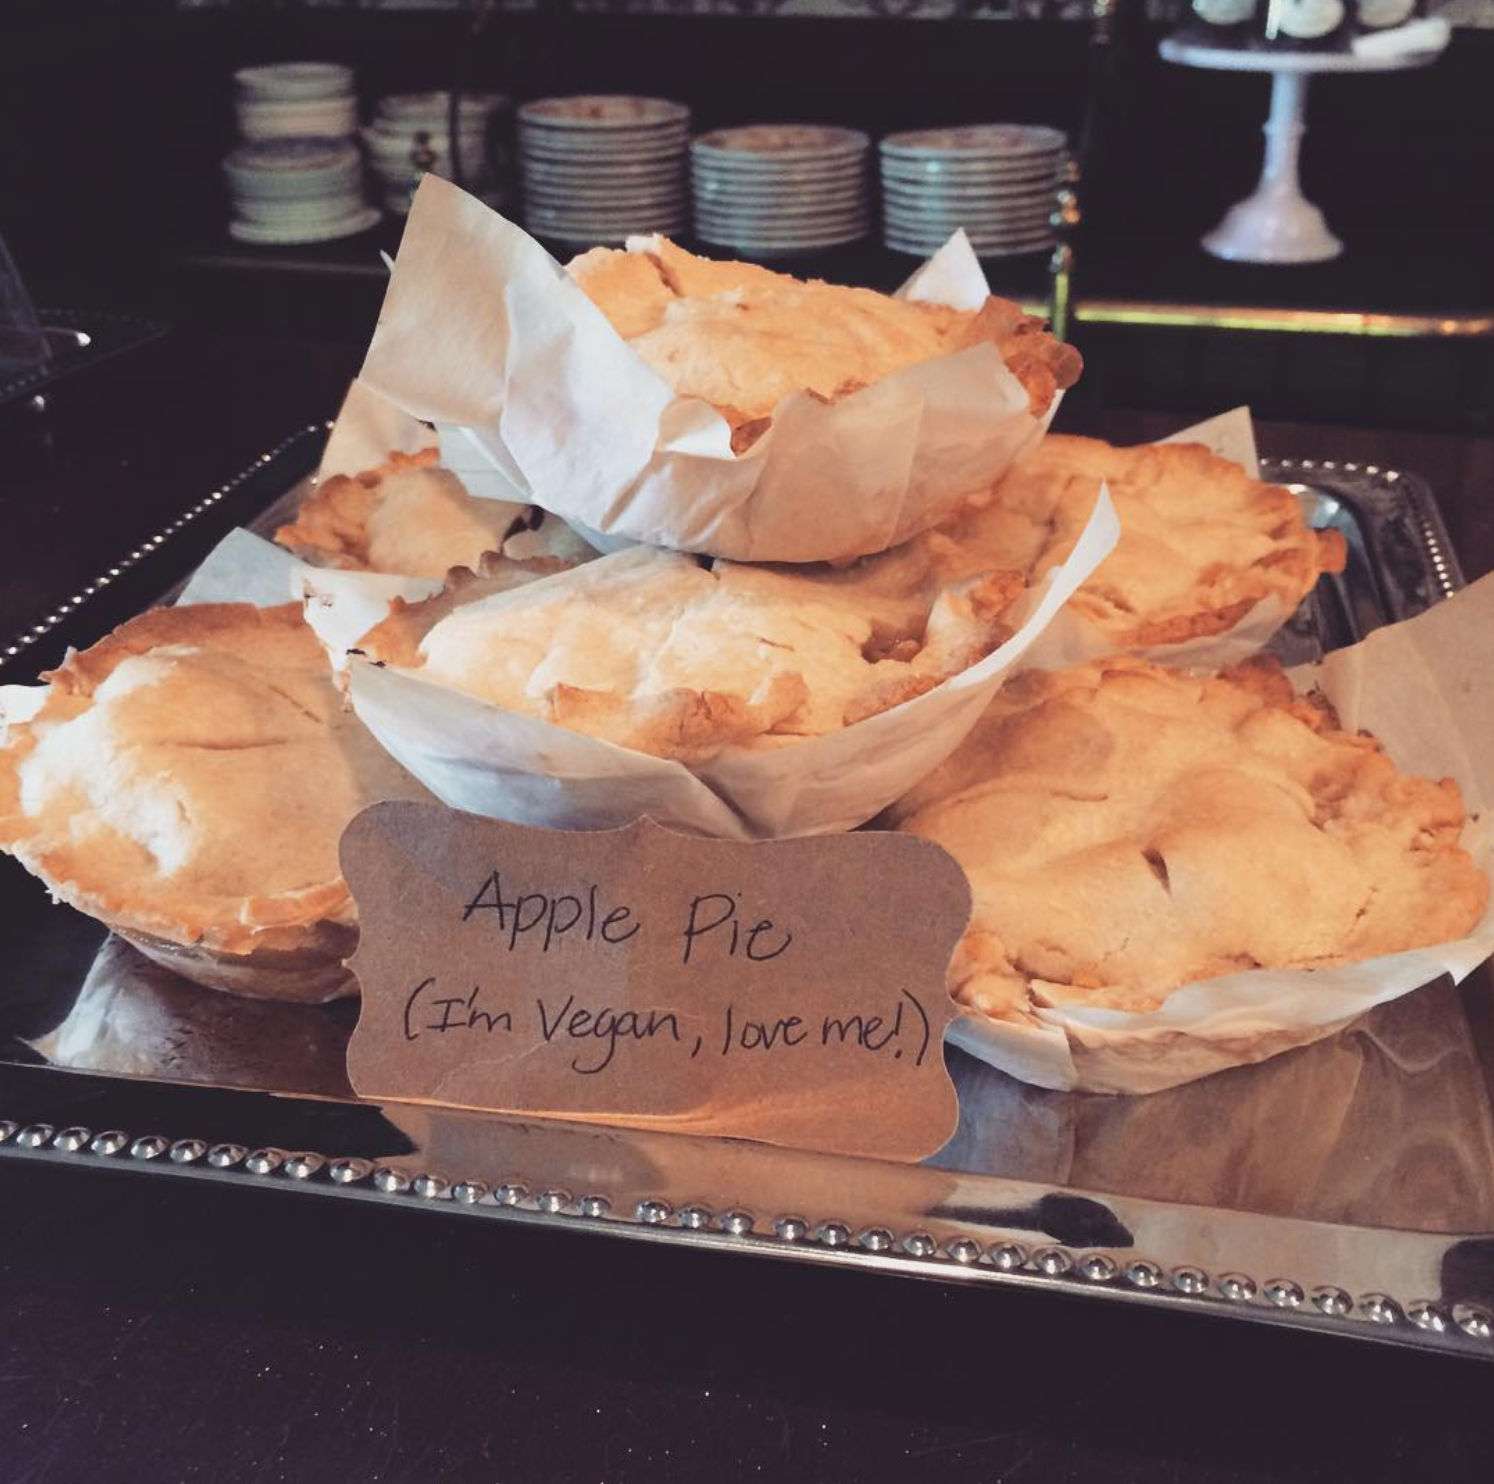 Apple Pie
(I'm Vegan, love me!)